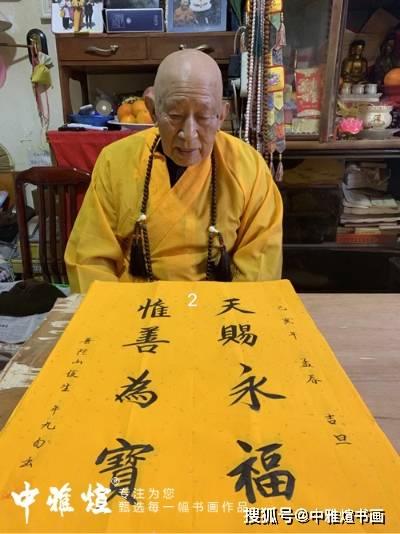 己亥年 孟春 吉旦
天賜永福
惟善為寶
普陀山 生 年九旬
2
中雅煊®
专注为您
甄选每一幅书画作品
搜狐号@中雅煊书画